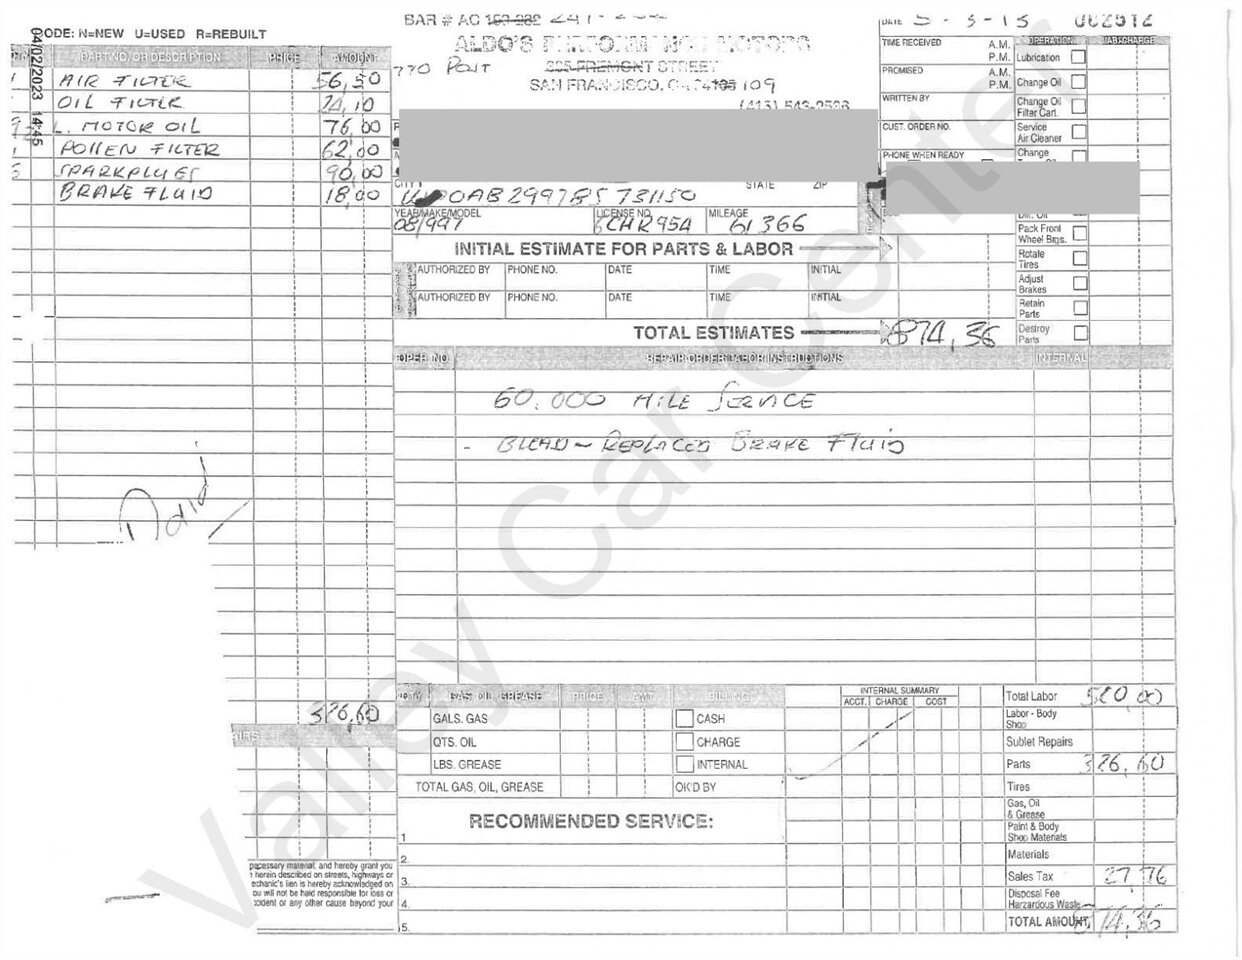 CODE: N=NEW U=USED R=REBUILT
04/02/2023 14:45
PART NO. OR DESCRIPTION PRICE AMOUNT
AIR FILTER 56,50
OIL FILTER 24,10
L. MOTOR OIL 76,00
POLLEN FILTER 62,00
SPARKPLUGS 90,00
BRAKE FLUID 18,00
Paid
326,60
BAR # AC
ALDO'S PERFORMANCE MOTORS
770 Post FREMONT STREET
SAN FRANCISCO, CA 109
DATE 5-3-13 002512
TIME RECEIVED A.M. P.M.
PROMISED A.M. P.M.
WRITTEN BY
CUST. ORDER NO.
PHONE WHEN READY
OPERATION LAB.CHARGE
Lubrication
Change Oil
Change Oil Filter Cart.
Service Air Cleaner
Change
Diff. Oil
Pack Front Wheel Brgs.
Rotate Tires
Adjust Brakes
Retain Parts
Destroy Parts
CITY STATE ZIP
YEAR/MAKE/MODEL LICENSE NO. MILEAGE
08/997 6CHR954 61366
INITIAL ESTIMATE FOR PARTS & LABOR
AUTHORIZED BY PHONE NO. DATE TIME INITIAL
AUTHORIZED BY PHONE NO. DATE TIME INITIAL
TOTAL ESTIMATES 874,36
OPER. NO. REPAIR ORDER LABOR INSTRUCTIONS INTERNAL
60.000 MILE SERVICE
- BLEAD - REPLACED BRAKE FLUID
QTY GAS, OIL, GREASE PRICE AMT. BILLING
GALS. GAS CASH
QTS. OIL CHARGE
LBS. GREASE INTERNAL
TOTAL GAS, OIL, GREASE OK'D BY
INTERNAL SUMMARY
ACCT. CHARGE COST
RECOMMENDED SERVICE:
1
2.
3.
4.
5.
Total Labor 520,00
Labor - Body Shop
Sublet Repairs
Parts 326,60
Tires
Gas, Oil & Grease
Paint & Body Shop Materials
Materials
Sales Tax 27,76
Disposal Fee Hazardous Waste
TOTAL AMOUNT 874,36
necessary material, and hereby grant you
herein described on streets, highways or
mechanic's lien is hereby acknowledged on
you will not be held responsible for loss or
accident or any other cause beyond your
Valley Car Center